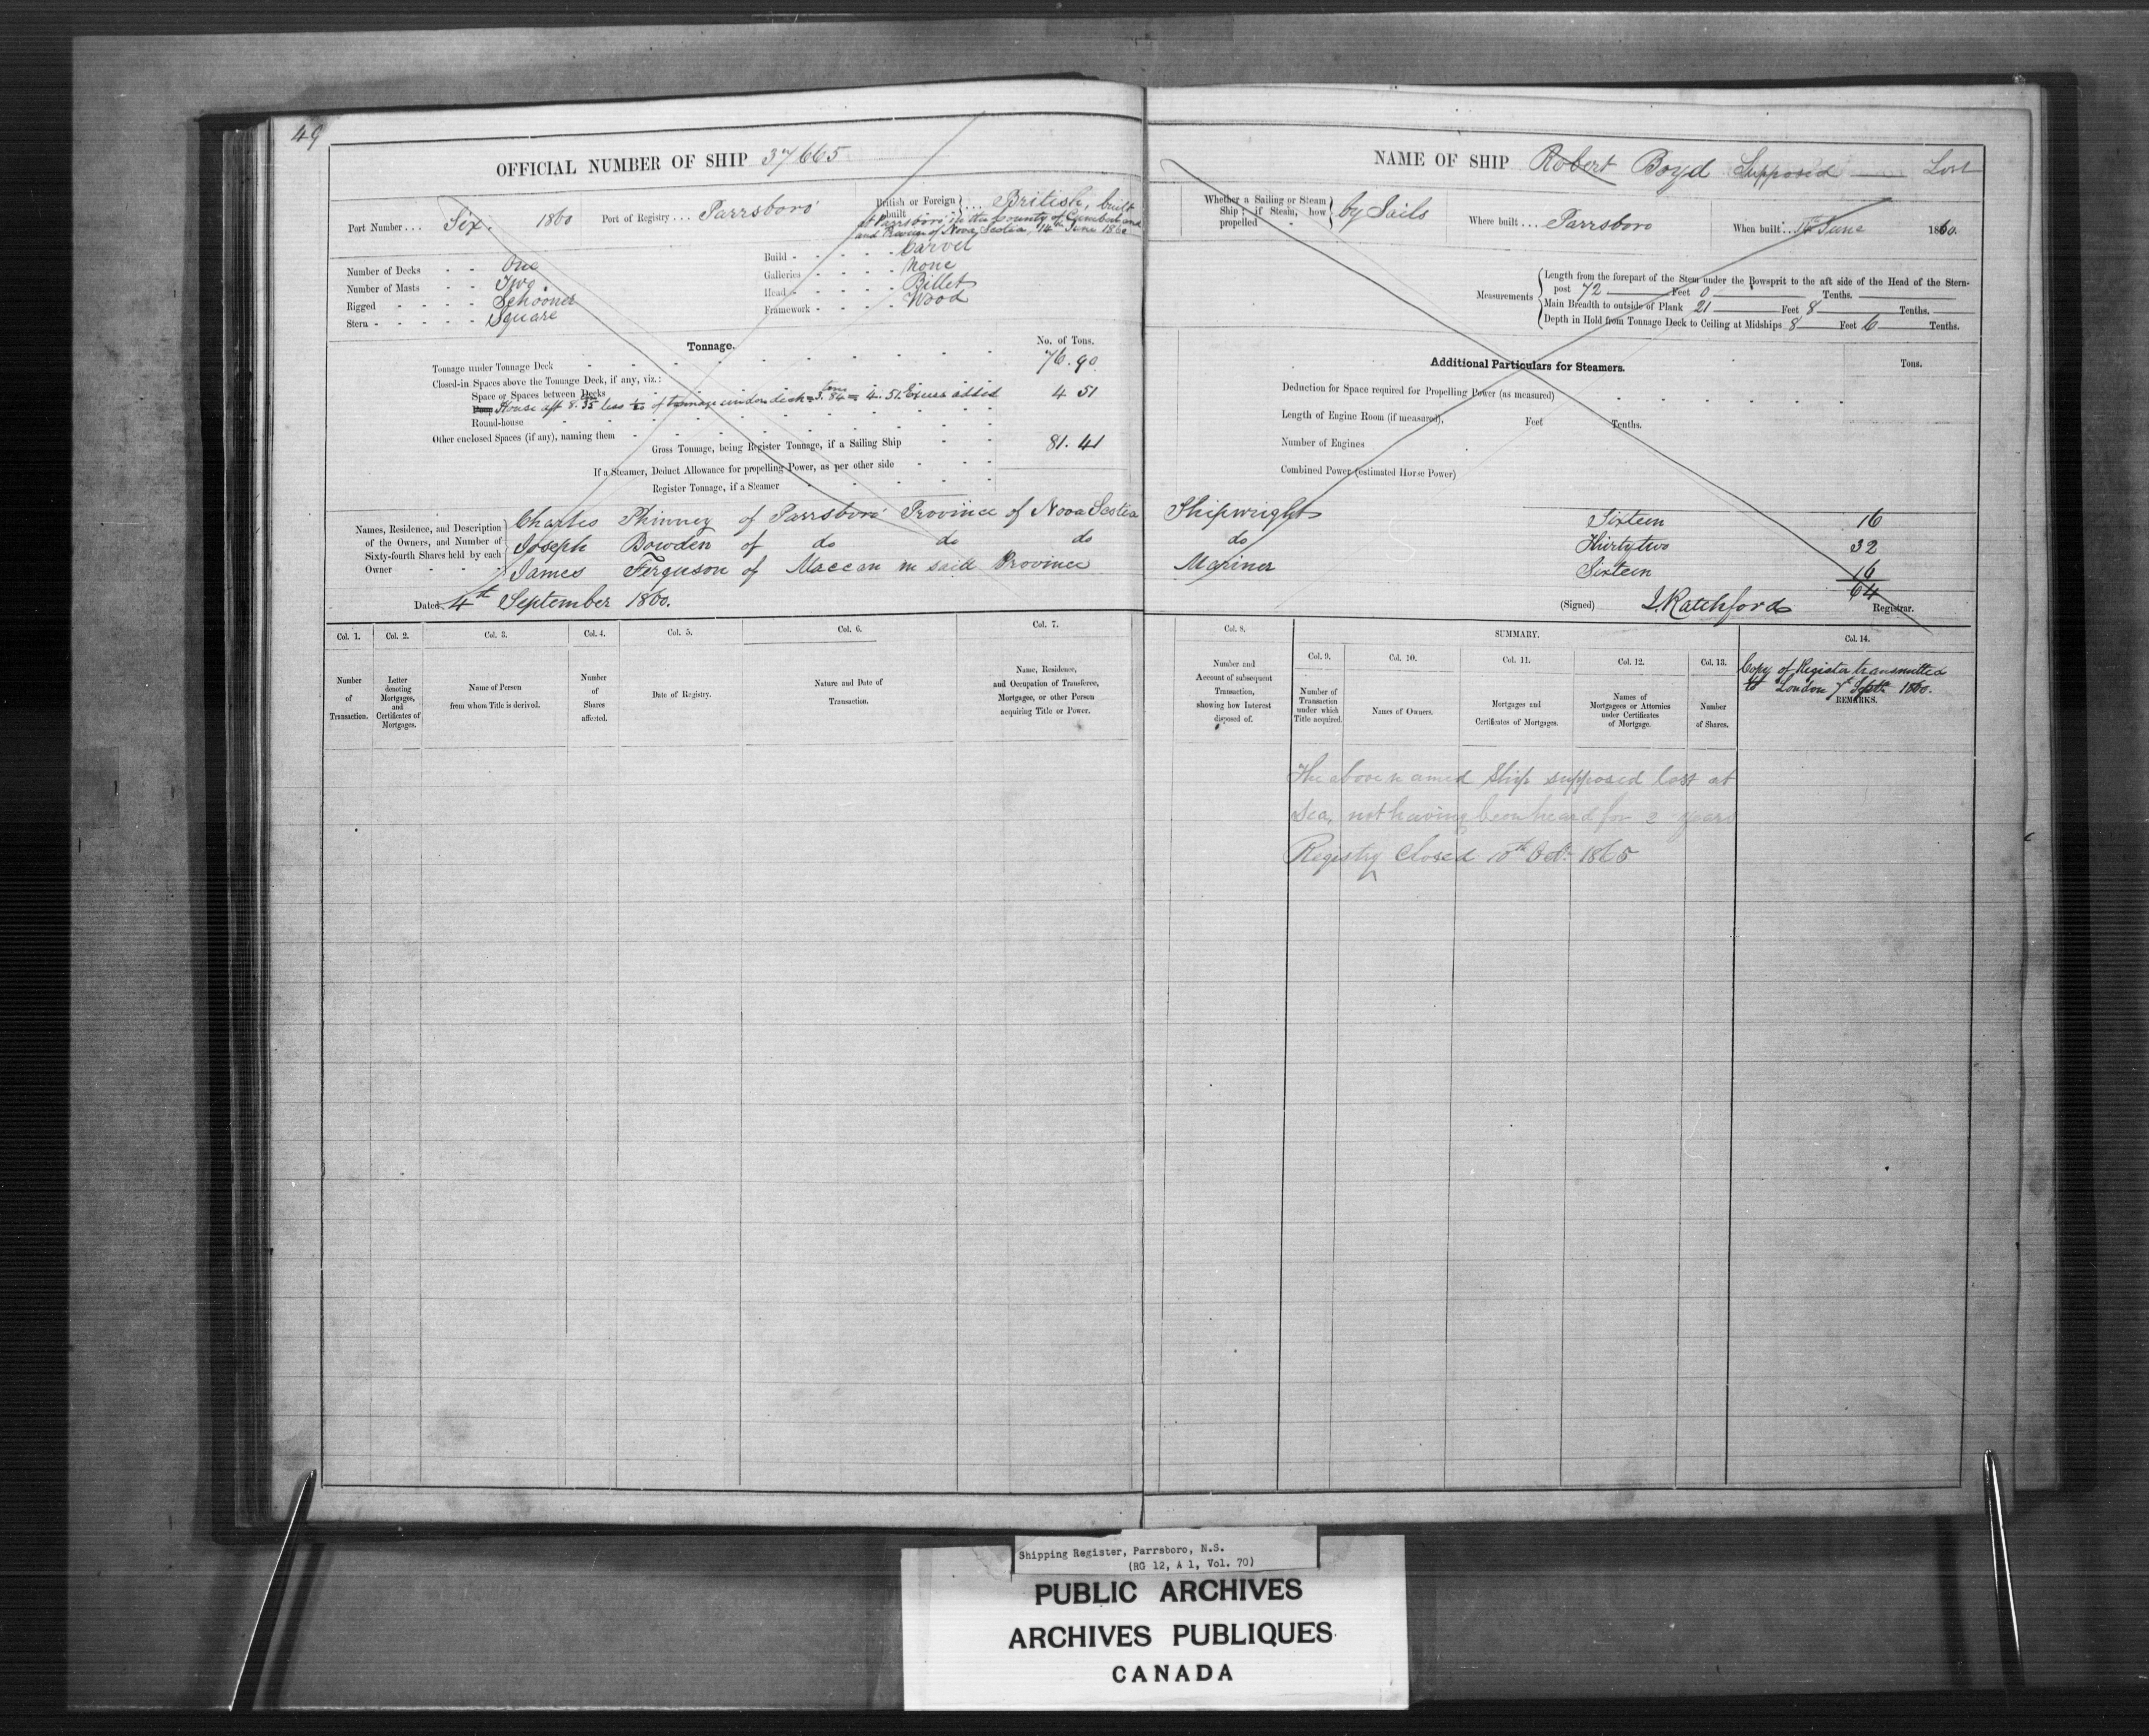 49
OFFICIAL NUMBER OF SHIP 37665
Port Number ... Six. 1860 Port of Registry ... Parrsboro British or Foreign built ... British, built
at Parrsboro in the County of Cumberland
and Province of Nova Scotia, 14th June 1860
Number of Decks One Build Carvel
Number of Masts Two. Galleries None
Rigged Schooner Head Billet
Stern Square Framework Wood
Tonnage. No. of Tons.
Tonnage under Tonnage Deck 76.90
Closed-in Spaces above the Tonnage Deck, if any, viz.:
Space or Spaces between Decks
House aft 8.35 less of tonnage under deck = 3.84 tons = 4.51 Excess added 4 51
Round-house
Other enclosed Spaces (if any), naming them
Gross Tonnage, being Register Tonnage, if a Sailing Ship 81.41
If a Steamer, Deduct Allowance for propelling Power, as per other side
Register Tonnage, if a Steamer
Names, Residence, and Description of the Owners, and Number of Sixty-fourth Shares held by each Owner
Charles Phinney of Parrsboro Province of Nova Scotia
Joseph Bowden of do do do
James Ferguson of Maccan in said Province
Dated 4th September 1860.
Col. 1. Col. 2. Col. 3. Col. 4. Col. 5. Col. 6. Col. 7.
Number of Transaction.
Letter denoting Mortgages, and Certificates of Mortgages.
Name of Person from whom Title is derived.
Number of Shares affected.
Date of Registry.
Nature and Date of Transaction.
Name, Residence, and Occupation of Transferee, Mortgagee, or other Person acquiring Title or Power.
NAME OF SHIP Robert Boyd Supposed Lost
Whether a Sailing or Steam Ship; if Steam, how propelled by Sails Where built ... Parrsboro When built ... June 1860.
Measurements
Length from the forepart of the Stem under the Bowsprit to the aft side of the Head of the Stern-
post 72 Feet 0 Tenths.
Main Breadth to outside of Plank 21 Feet 8 Tenths.
Depth in Hold from Tonnage Deck to Ceiling at Midships 8 Feet 6 Tenths.
Additional Particulars for Steamers. Tons.
Deduction for Space required for Propelling Power (as measured)
Length of Engine Room (if measured), Feet Tenths.
Number of Engines
Combined Power (estimated Horse Power)
Shipwright Sixteen 16
do Thirty two 32
Mariner Sixteen 16
64
(Signed) Ratchford Registrar.
Col. 8. SUMMARY. Col. 14.
Col. 9. Col. 10. Col. 11. Col. 12. Col. 13.
Number and Account of subsequent Transaction, showing how Interest disposed of.
Number of Transaction under which Title acquired.
Names of Owners.
Mortgages and Certificates of Mortgages.
Names of Mortgagees or Attornies under Certificates of Mortgage.
Number of Shares.
Copy of Register transmitted
to London 7th Septr. 1860.
REMARKS.
The above named Ship supposed lost at
Sea, not having been heard for 2 years
Registry Closed 10th Oct. 1865
Shipping Register, Parrsboro, N.S.
(RG 12, A 1, Vol. 70)
PUBLIC ARCHIVES
ARCHIVES PUBLIQUES
CANADA